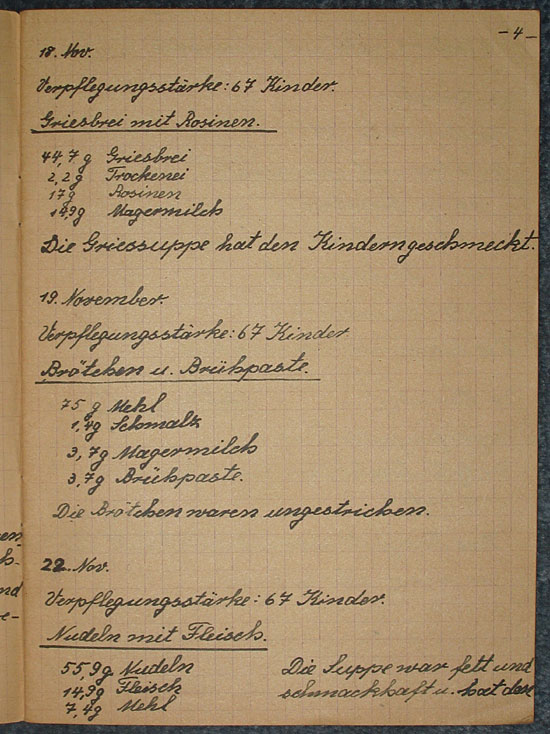 - 4 -
18. Nov.
Verpflegungsstärke: 67 Kinder.
Griesbrei mit Rosinen.
44,7 g Griesbrei
2,2 g Trockenei
17 g Rosinen
14,9 g Magermilch
Die Griessuppe hat den Kindern geschmeckt.
19. November.
Verpflegungsstärke: 67 Kinder
Brötchen u. Brühpaste.
75 g Mehl
1,4 g Schmalz
3,7 g Magermilch
3,7 g Brühpaste.
Die Brötchen waren ungestrichen.
22. Nov.
Verpflegungsstärke: 67 Kinder.
Nudeln mit Fleisch.
55,9 g Nudeln Die Suppe war fett und
14,9 g Fleisch schmackhaft u. hat den
7,4 g Mehl